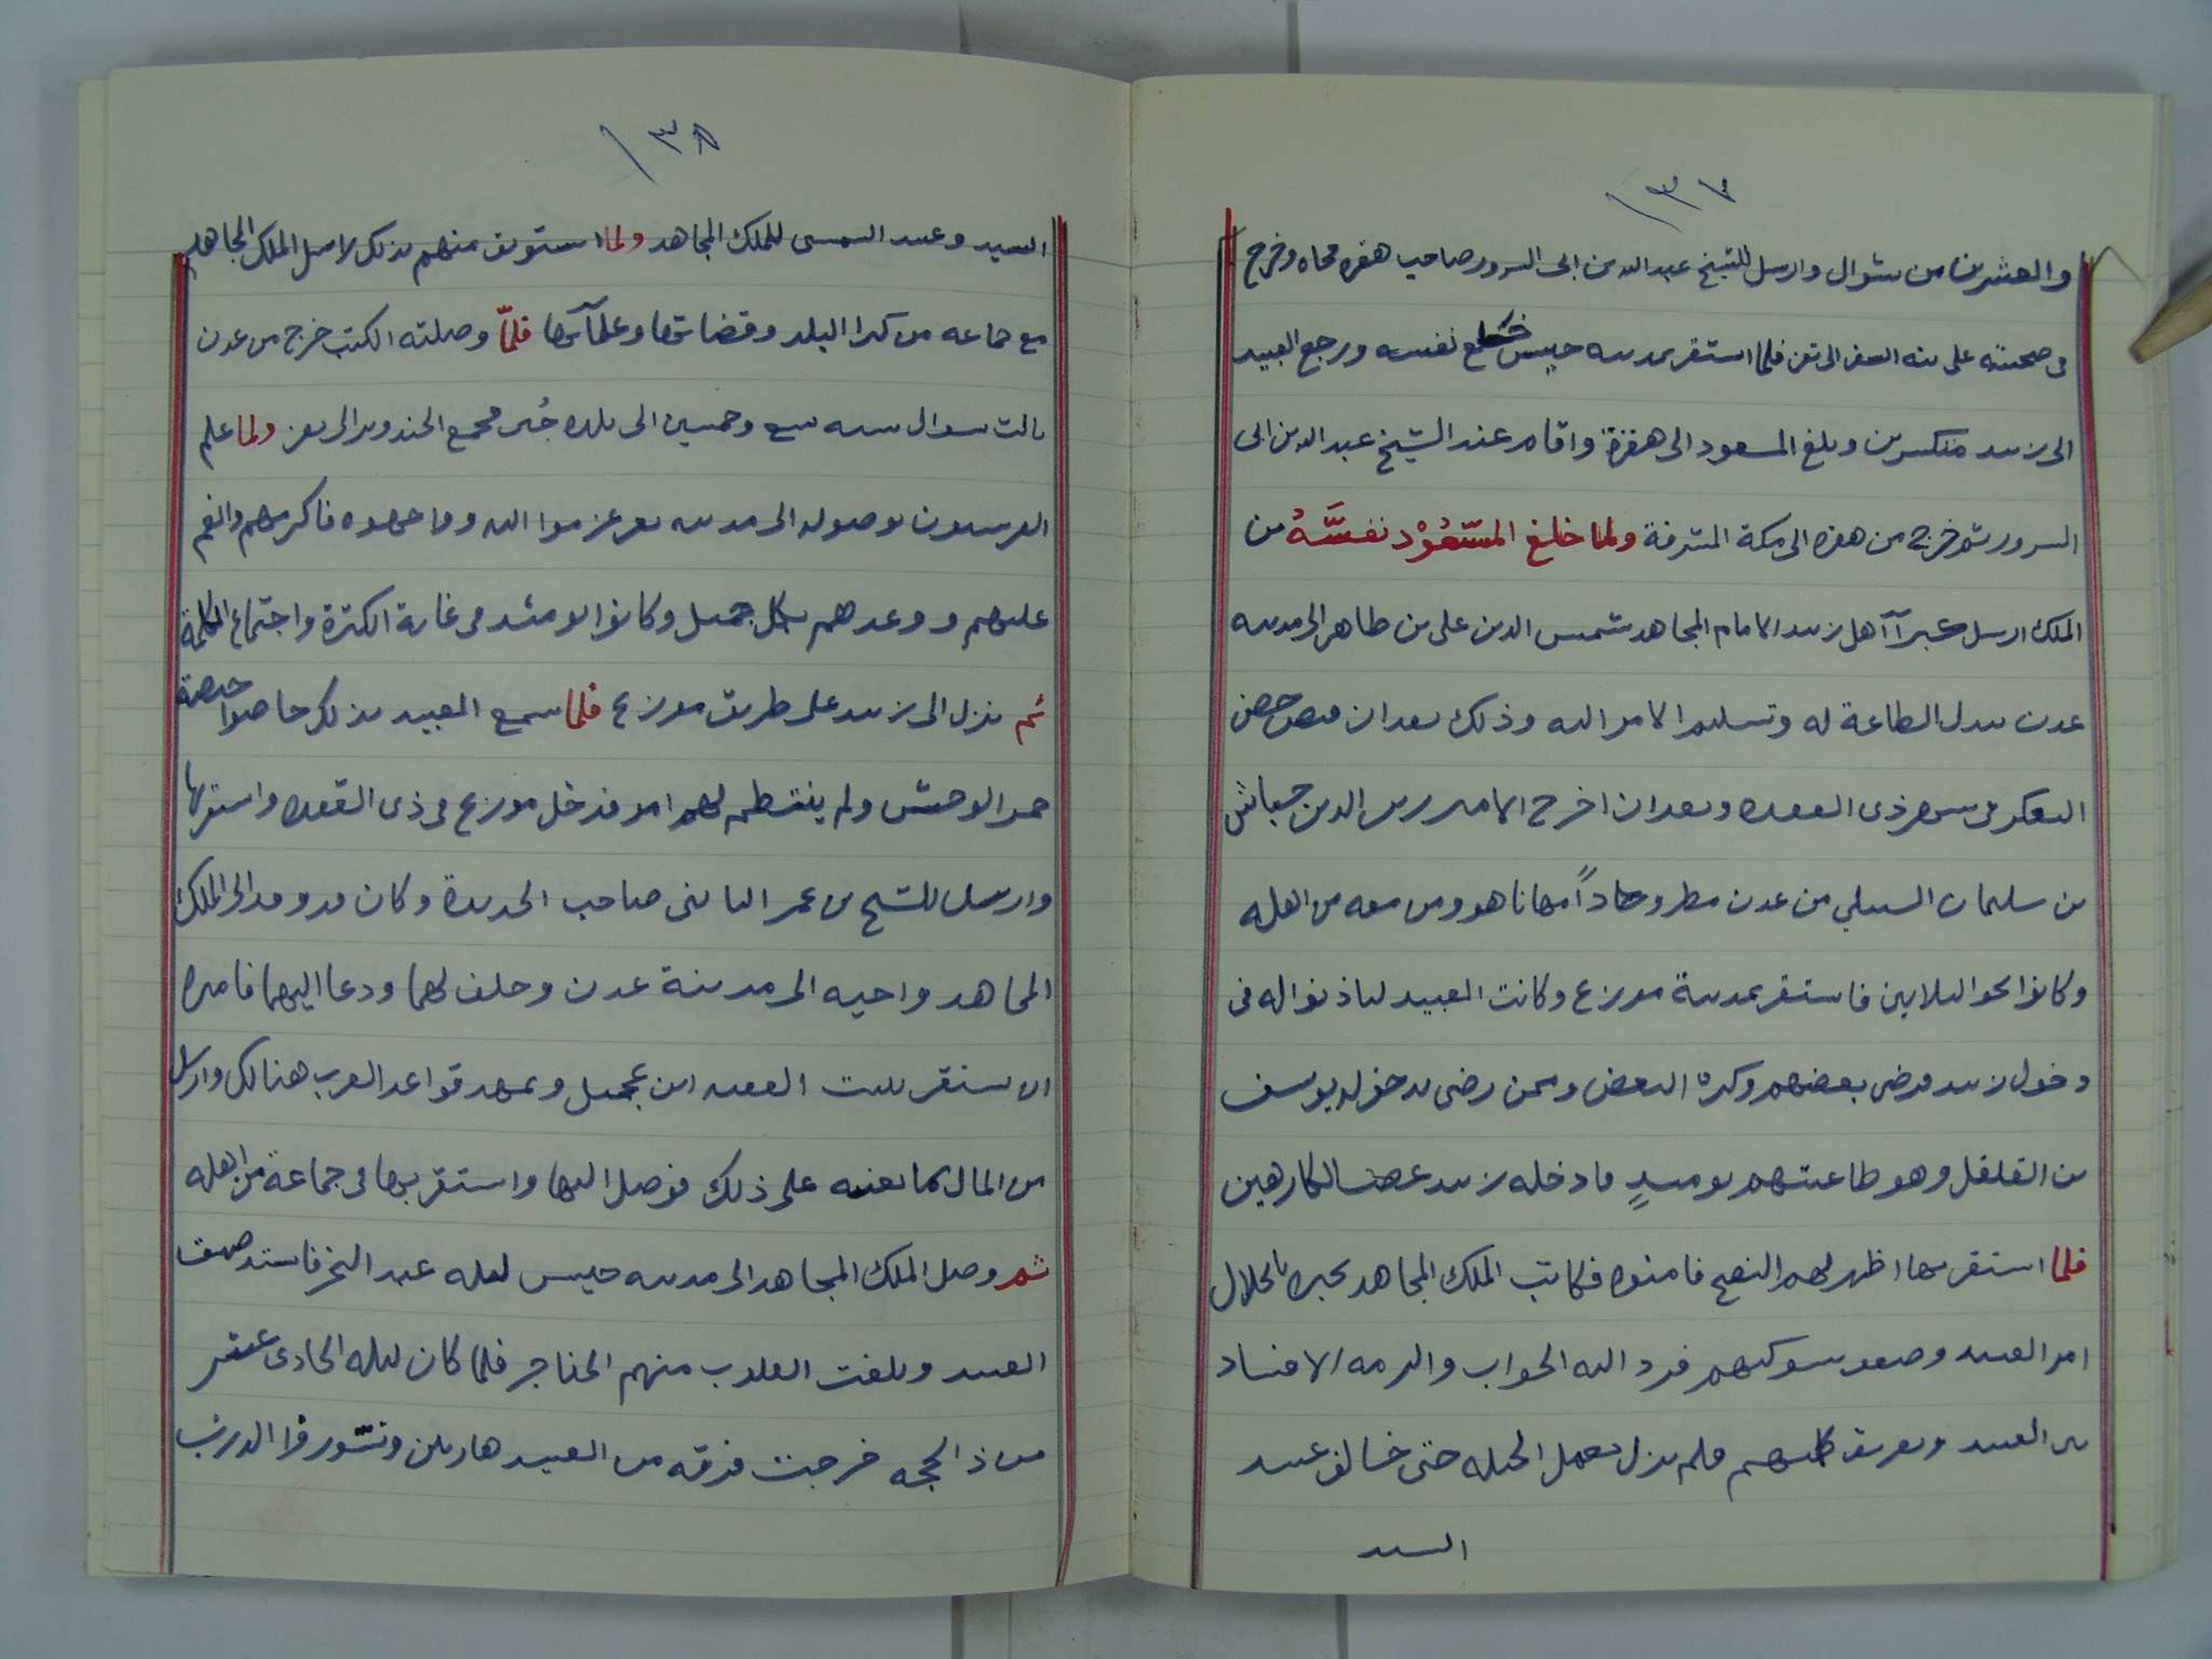 ١٣٧
والعشرين من شوال وارسل للشيخ عبد الله بن ابى السرور صاحب هقره فجاه وخرج
فى صحبته على نيه السفر الى تعز فلما استقر بمدينه حيس خلع نفسه ورجع العبيد
الى زبيد منكسرين وبلغ المسعود الى هقرة واقام عند الشيخ عبد الله بن ابى
السرور ثم خرج من هقره الى مكة المشرفة ولما خلغ المسعود نفسه من
الملك ارسل كبرآ آهل زبيد الامام المجاهد شمس الدين على بن طاهر الى مدينه
عدن ببدل الطاعة له وتسليم الامر اليه وذلك بعد ان قبض حصن
التعكر فى شهر ذى القعده وبعد ان اخرج الامير زين الدين جياش
بن سليمان السنبلي من عدن مطرودا مهانا هو ومن معه من اهله
وكانوا نحو الثلاثين فاستقر بمدينة موزع وكانت العبيد لياذنوا له فى
دخول زبيد فرضى بعضهم وكره البعض وممن رضى بدخوله يوسف
بن القلقل وهو طاغيتهم يوميدٍ فادخله زبيد غصب الكارهين
فلما استقر بها اظهر لهم النصح فامنوه فكاتب الملك المجاهد يخبره بانحلال
امر العبيد وضعف شوكتهم فرد اليه الجواب والزمه الافساد
بين العبيد وتعريف كلمتهم فلم يزل يعمل الحيله حتى خالف عبيد
السيد
١٣٨
السيد وعبيد الشمسى للملك المجاهد ولما استوثق منهم بذلك لاسل الملك المجاهد
مع جماعه من كبرا البلد وقضاتها وعلمآئها فلمّا وصلته الكتب خرج من عدن
ثالث شوال سنه تسع وخمسين الى بلده جُبن فجمع الجند ونزل الى تعز ولما علم
القرشيون بوصوله الى مدينه تعز عزموا اليه وواجهوه فاكرمهم وانعم
عليهم ووعدهم بكل جميل وكانوا يومئد فى غاية الكثرة واجتماع الكلمة
ثم نزل الى زبيد على طريق موزع فلما سمع العبيد بذلك حاصوا حيصة
حمر الوحش ولم ينتظم لهم امر فدخل موزع فى ذى القعده واستقر بها
وارسل للشيخ بن عمر الثابتى صاحب الحديدة وكان قد وفد الى الملك
المجاهد واخيه الى مدينة عدن وحلف لهما ودعا اليهما فامره
ان يستقر ببيت الفقيه ابن عجيل ويمهد قواعد العرب هنالك وارسل
من المال بما يعينه على ذلك فوصل اليها واستقر بها فى جماعة من اهله
ثم وصل الملك المجاهد الى مدينه حيس ليله عيد النحر فاشتد ضيق
العبيد وبلغت القلوب منهم الحناجر فلما كان ليله الحادى عشر
من ذ الحجه خرجت فرقه من العبيد هاربين وتسوروا الدرب